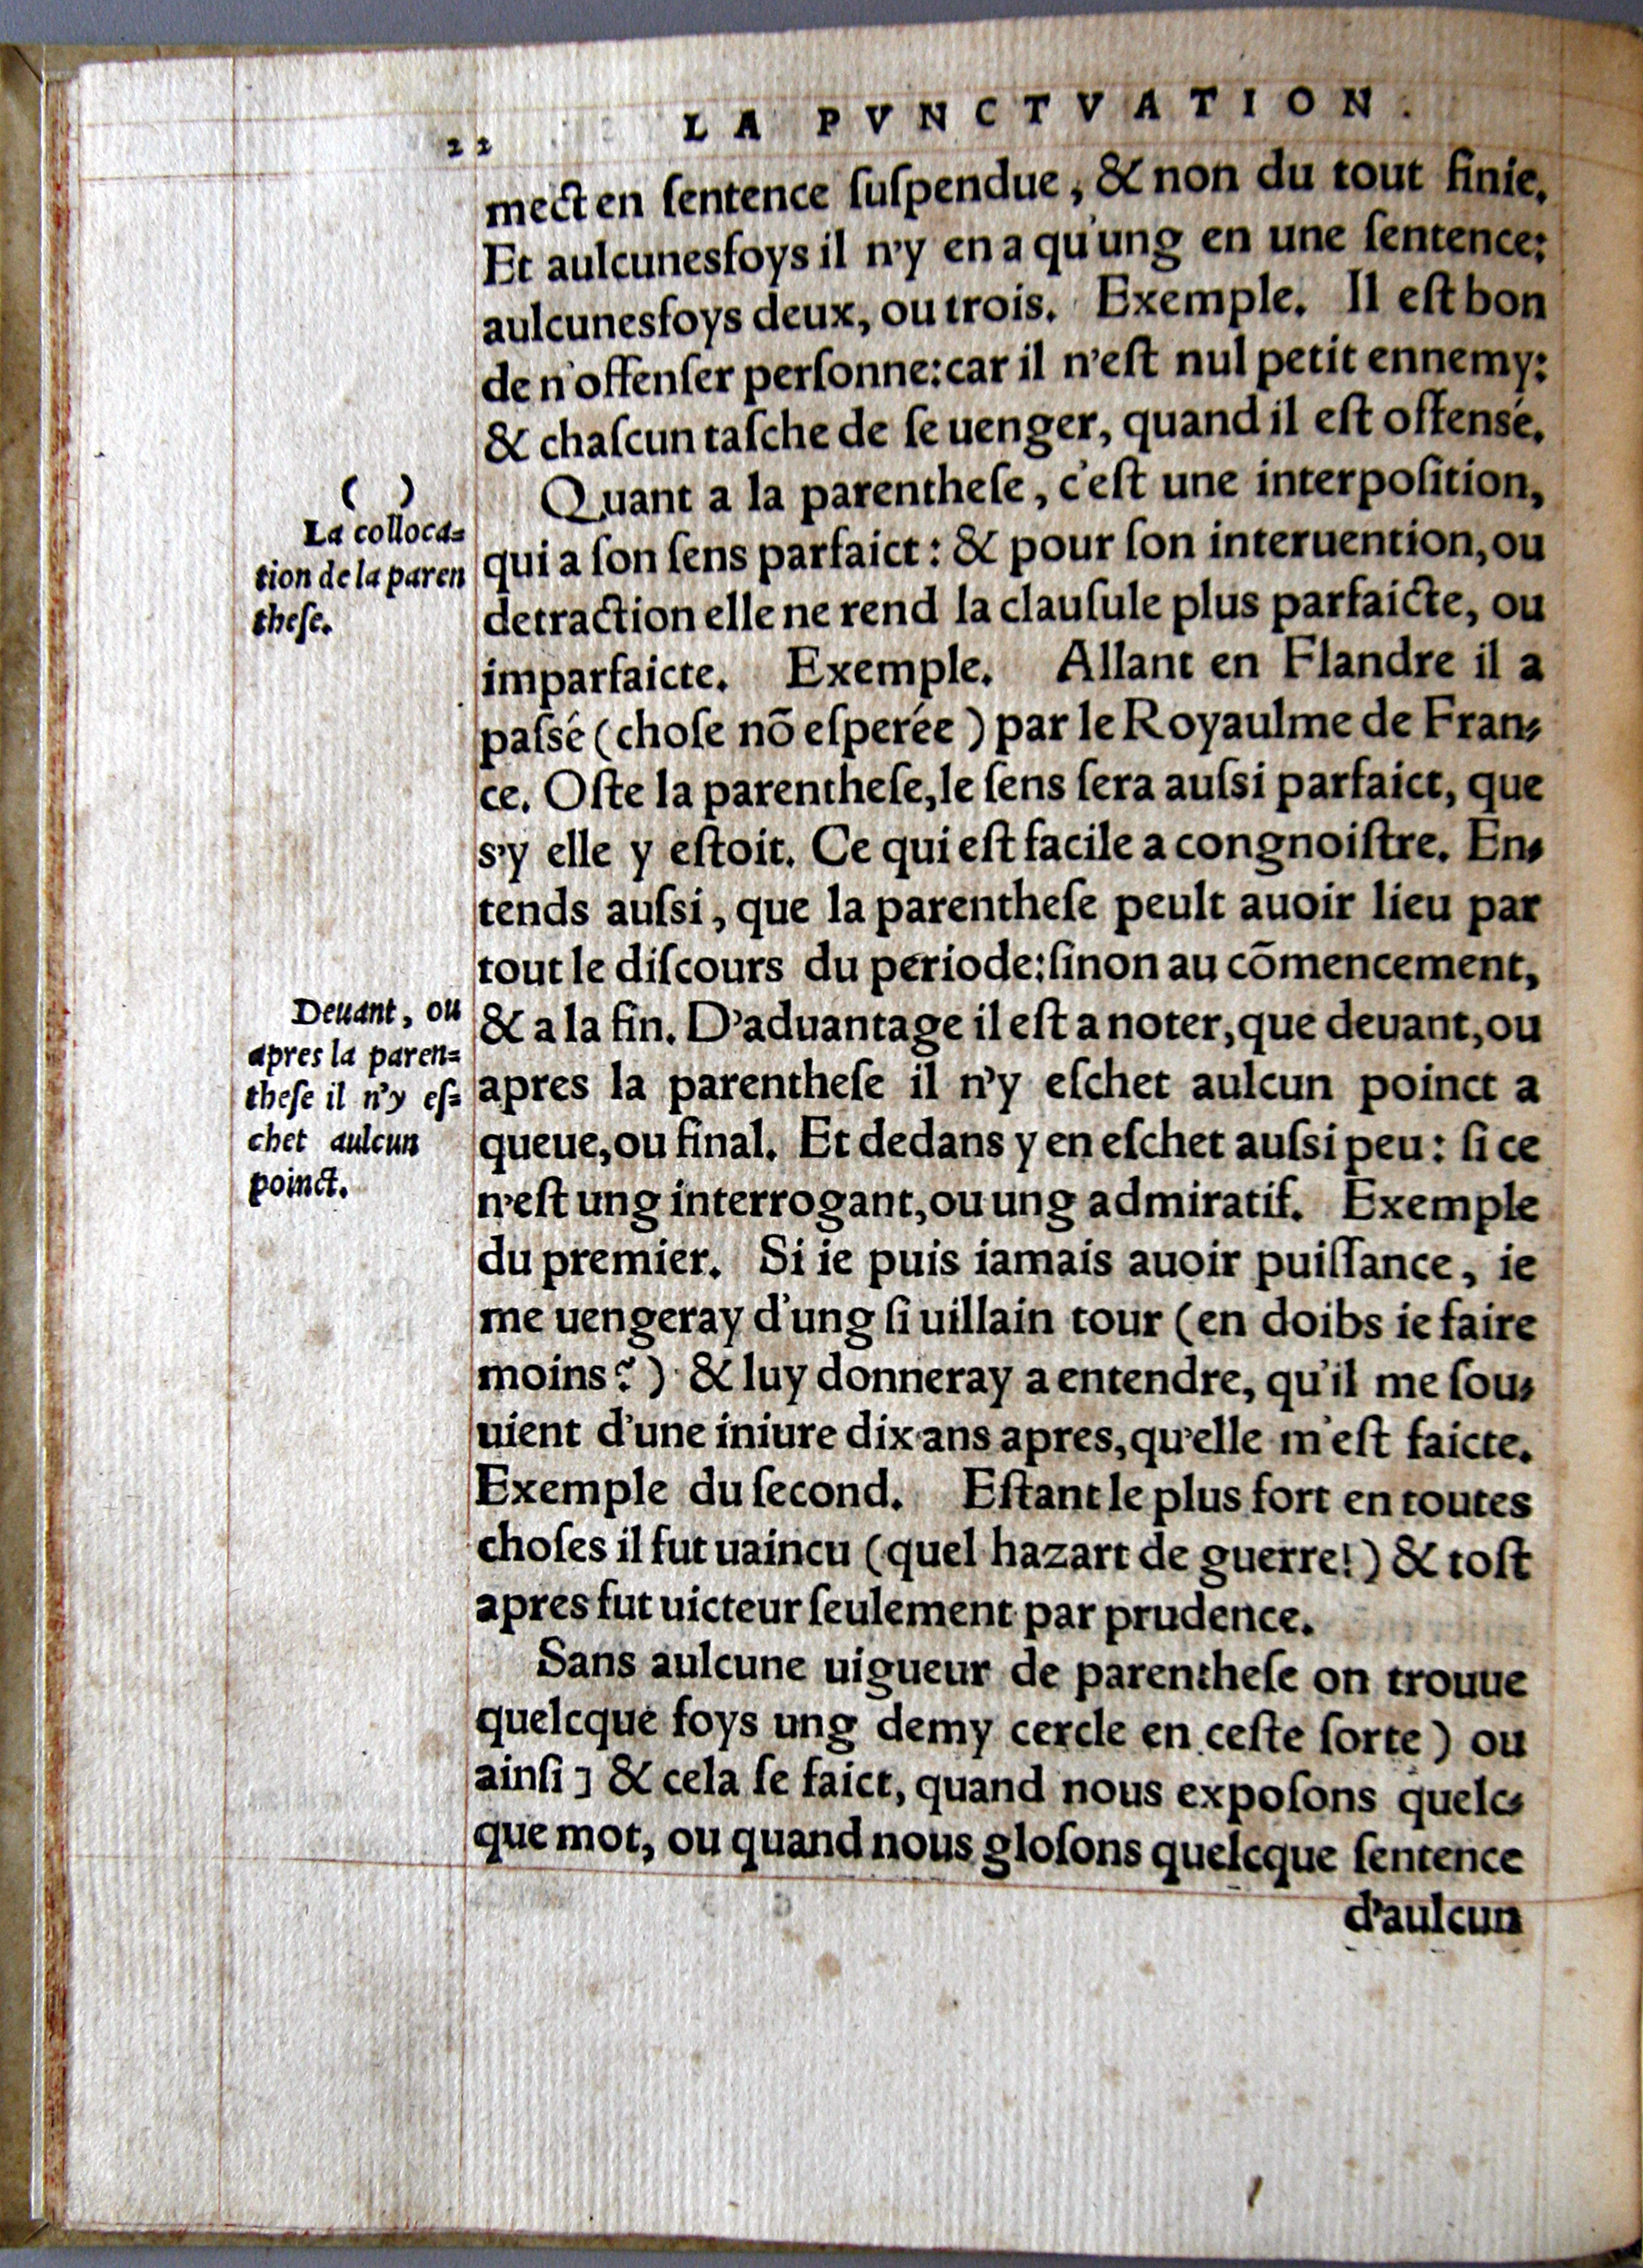 22 LA PVNCTVATION.
mect en ſentence ſuſpendue, & non du tout finie.
Et aulcunesfoys il n'y en a qu'ung en une ſentence:
aulcunesfoys deux, ou trois. Exemple. Il eſt bon
de n'offenſer perſonne: car il n'eſt nul petit ennemy:
& chaſcun taſche de ſe uenger, quand il eſt offensé.
( )
La colloca=
tion de la paren
theſe.
Quant a la parentheſe, c'eſt une interpoſition,
qui a ſon ſens parfaict: & pour ſon interuention, ou
detraction elle ne rend la clauſule plus parfaicte, ou
imparfaicte. Exemple. Allant en Flandre il a
paſsé (choſe nõ eſperée) par le Royaulme de Fran-
ce. Oſte la parentheſe, le ſens ſera auſsi parfaict, que
s'y elle y eſtoit. Ce qui eſt facile a congnoiſtre. En-
tends auſsi, que la parentheſe peult auoir lieu par
tout le diſcours du periode: ſinon au cõmencement,
& a la fin. D'aduantage il eſt a noter, que deuant, ou
apres la parentheſe il n'y eſchet aulcun poinct a
queue, ou final. Et dedans y en eſchet auſsi peu: ſi ce
n'eſt ung interrogant, ou ung admiratif. Exemple
du premier. Si ie puis iamais auoir puiſſance, ie
me uengeray d'ung ſi uillain tour (en doibs ie faire
moins?) & luy donneray a entendre, qu'il me ſou-
uient d'une iniure dix ans apres, qu'elle m'eſt faicte.
Exemple du ſecond. Eſtant le plus fort en toutes
choſes il fut uaincu (quel hazart de guerre!) & toſt
apres fut uicteur ſeulement par prudence.
Deuant, ou
apres la paren=
theſe il n'y eſ=
chet aulcun
poinct.
Sans aulcune uigueur de parentheſe on trouue
quelcque foys ung demy cercle en ceſte ſorte) ou
ainſi] & cela ſe faict, quand nous expoſons quelc-
que mot, ou quand nous gloſons quelcque ſentence
d'aulcun